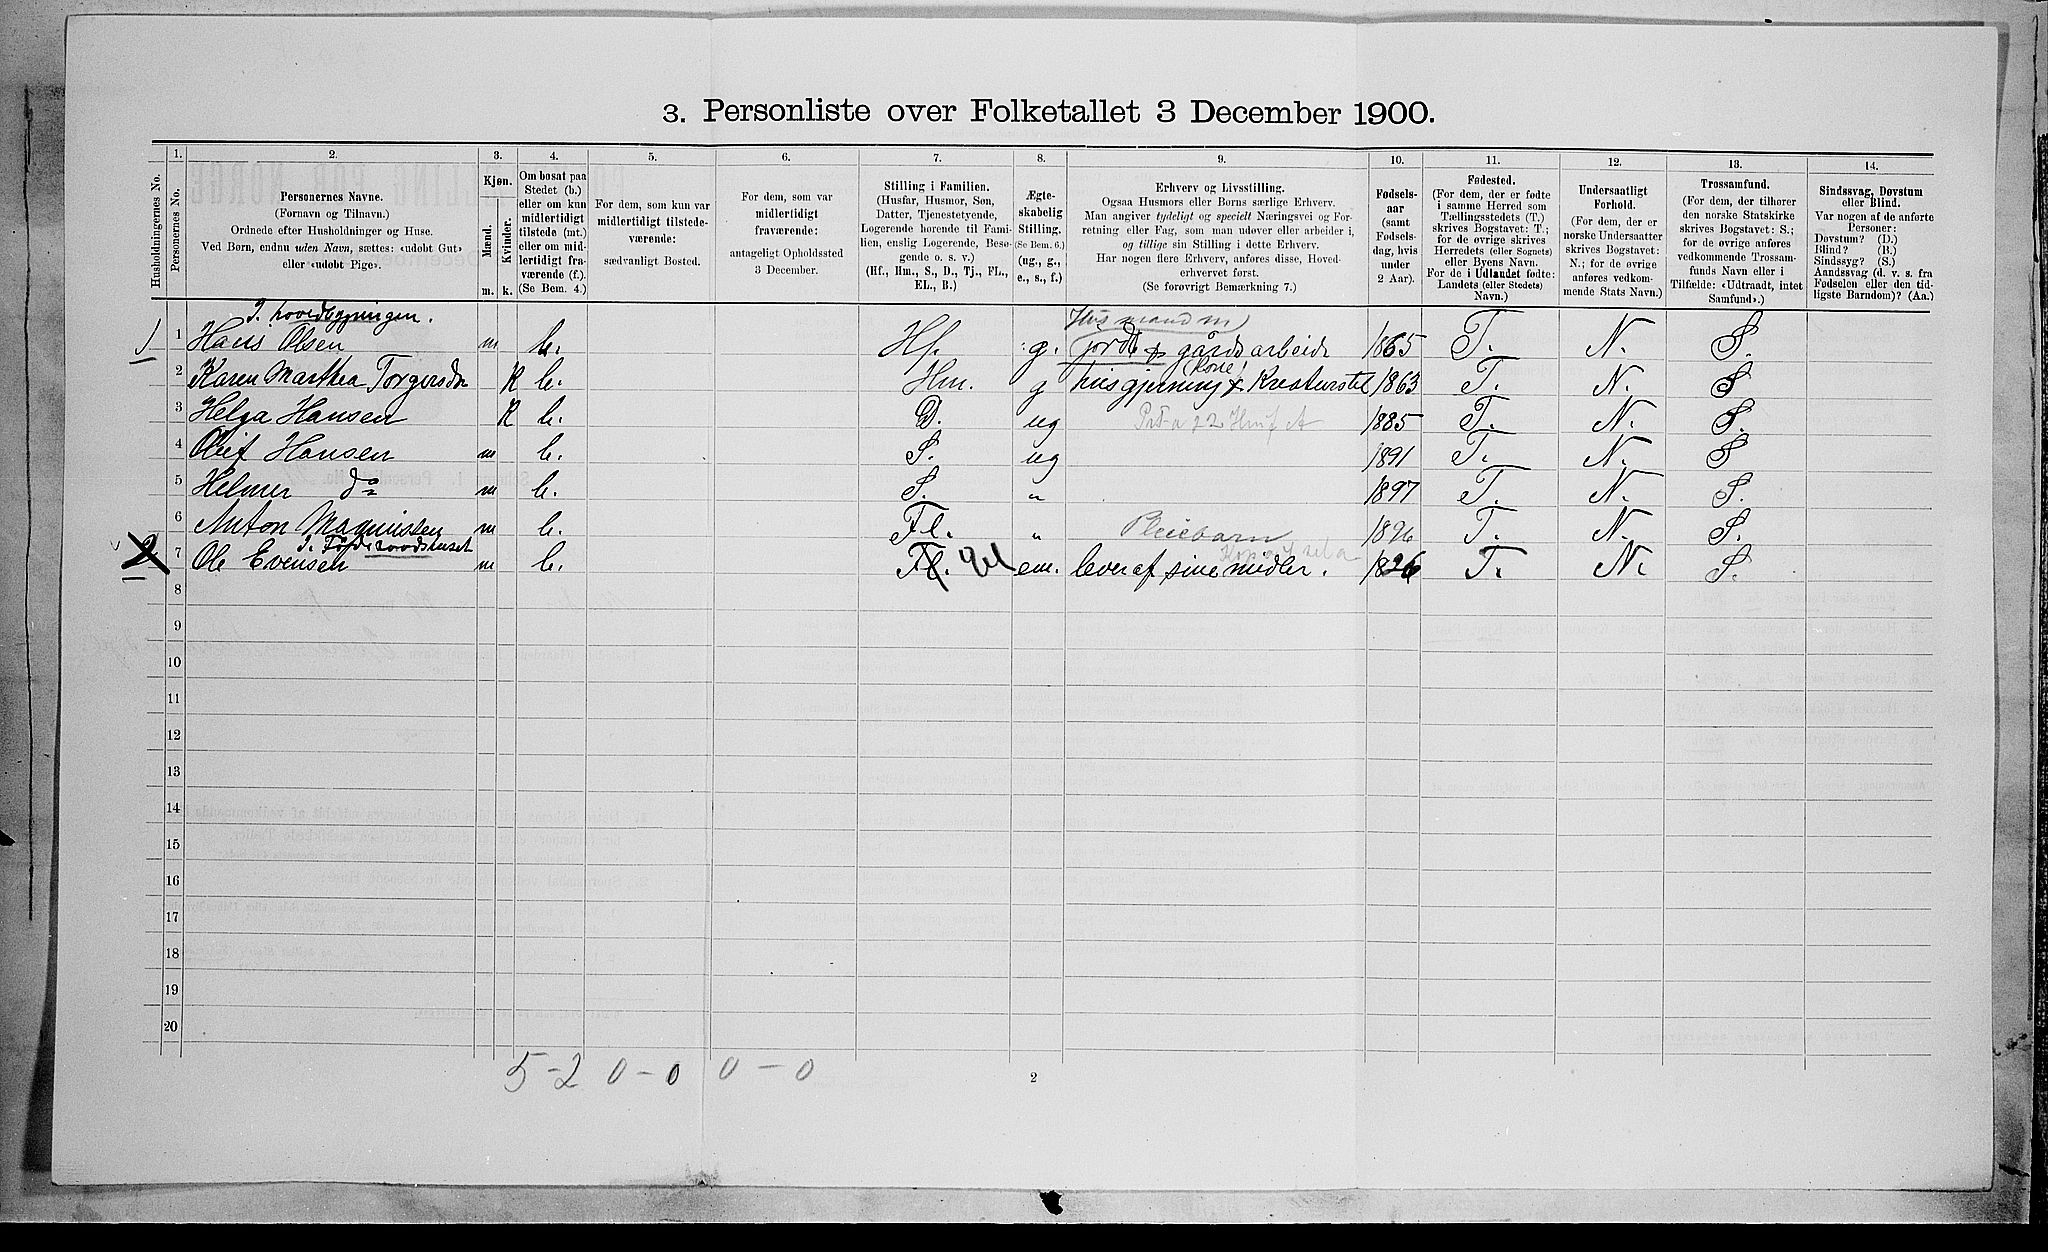 3. Personliste over Folketallet 3 December 1900.
1. 2. 3. 4. 5. 6. 7. 8. 9. 10. 11. 12. 13. 14.
Husholdningernes No.
Personernes No.
Personernes Navne.
(Fornavn og Tilnavn.)
Ordnede efter Husholdninger og Huse.
Ved Børn, endnu uden Navn, sættes: «udøbt Gut»
eller «udøbt Pige».
Kjøn.
Mænd.
Kvinder.
m. k.
Om bosat paa
Stedet (b.)
eller om kun
midlertidigt
tilstede (mt.)
eller om mid-
lertidigt fra-
værende (f.).
(Se Bem. 4.)
For dem, som kun var
midlertidigt tilstede-
værende:
sædvanligt Bosted.
For dem, som var
midlertidigt
fraværende:
antageligt Opholdssted
3 December.
Stilling i Familien.
(Husfar, Husmor, Søn,
Datter, Tjenestetyende,
Logerende hørende til Fami-
lien, enslig Logerende, Besø-
gende o. s. v.)
(Hf., Hm., S., D., Tj., FL.,
EL., B.)
Ægte-
skabelig
Stilling.
(Se Bem. 6.)
(ug., g.,
e., s., f.)
Erhverv og Livsstilling.
Ogsaa Husmors eller Børns særlige Erhverv.
Man angiver tydeligt og specielt Næringsvei og For-
retning eller Fag, som man udøver eller arbeider i,
og tillige sin Stilling i dette Erhverv.
Har nogen flere Erhverv, anføres disse, Hoved-
erhvervet først.
(Se forøvrigt Bemærkning 7.)
Fødsels-
aar
(samt
Fødsels-
dag, hvis
under
2 Aar).
Fødested.
(For dem, der er fødte
i samme Herred som
Tællingsstedets (T.)
skrives Bogstavet: T.;
for de øvrige skrives
Herredets (eller Sognets)
eller Byens Navn.
For de i Udlandet fødte:
Landets (eller Stedets)
Navn.)
Undersaatligt
Forhold.
(For dem, der er
norske Undersaatter
skrives Bogstavet:
N.; for de øvrige
anføres vedkom-
mende Stats Navn.)
Trossamfund.
(For dem, der tilhører
den norske Statskirke
skrives Bogstavet: S.;
for de øvrige anføres
vedkommende Trossam-
funds Navn eller i
Tilfælde: «Udtraadt, intet
Samfund».)
Sindssvag, Døvstum
eller Blind.
Var nogen af de anførte
Personer:
Døvstum? (D.)
Blind? (B.)
Sindssyg? (S.)
Aandssvag (d. v. s. fra
Fødselen eller den tid-
ligste Barndom)? (Aa.)
I. hovedbygningen. Husmand m
1 1 Hans Olsen m b. Hf. g. jord & gårdsarbeide 1865 T. N. S.
2 Karen Marthea Torgersdtr k b. Hm. g husgjerning & Kreaturstel (Kone) 1863 T. N. S.
3 Helga Hansen k b. D. ug 1885 T. N. S.
4 Olif Hansen m b. S. ug 1891 T. N. S
5 Helmer do m b. S. " 1897 T. N. S.
6 Anton Magnussen m b. Fl. " Pleiebarn 1896 T. N. S.
I. Føderaadshuset
2 7 Ole Evensen m b. Fl. El em. lever af sine midler. 1826 T. N. S.
8
9
10
11
12
13
14
15
16
17
18
19
20
5-2 0-0 0-0
2